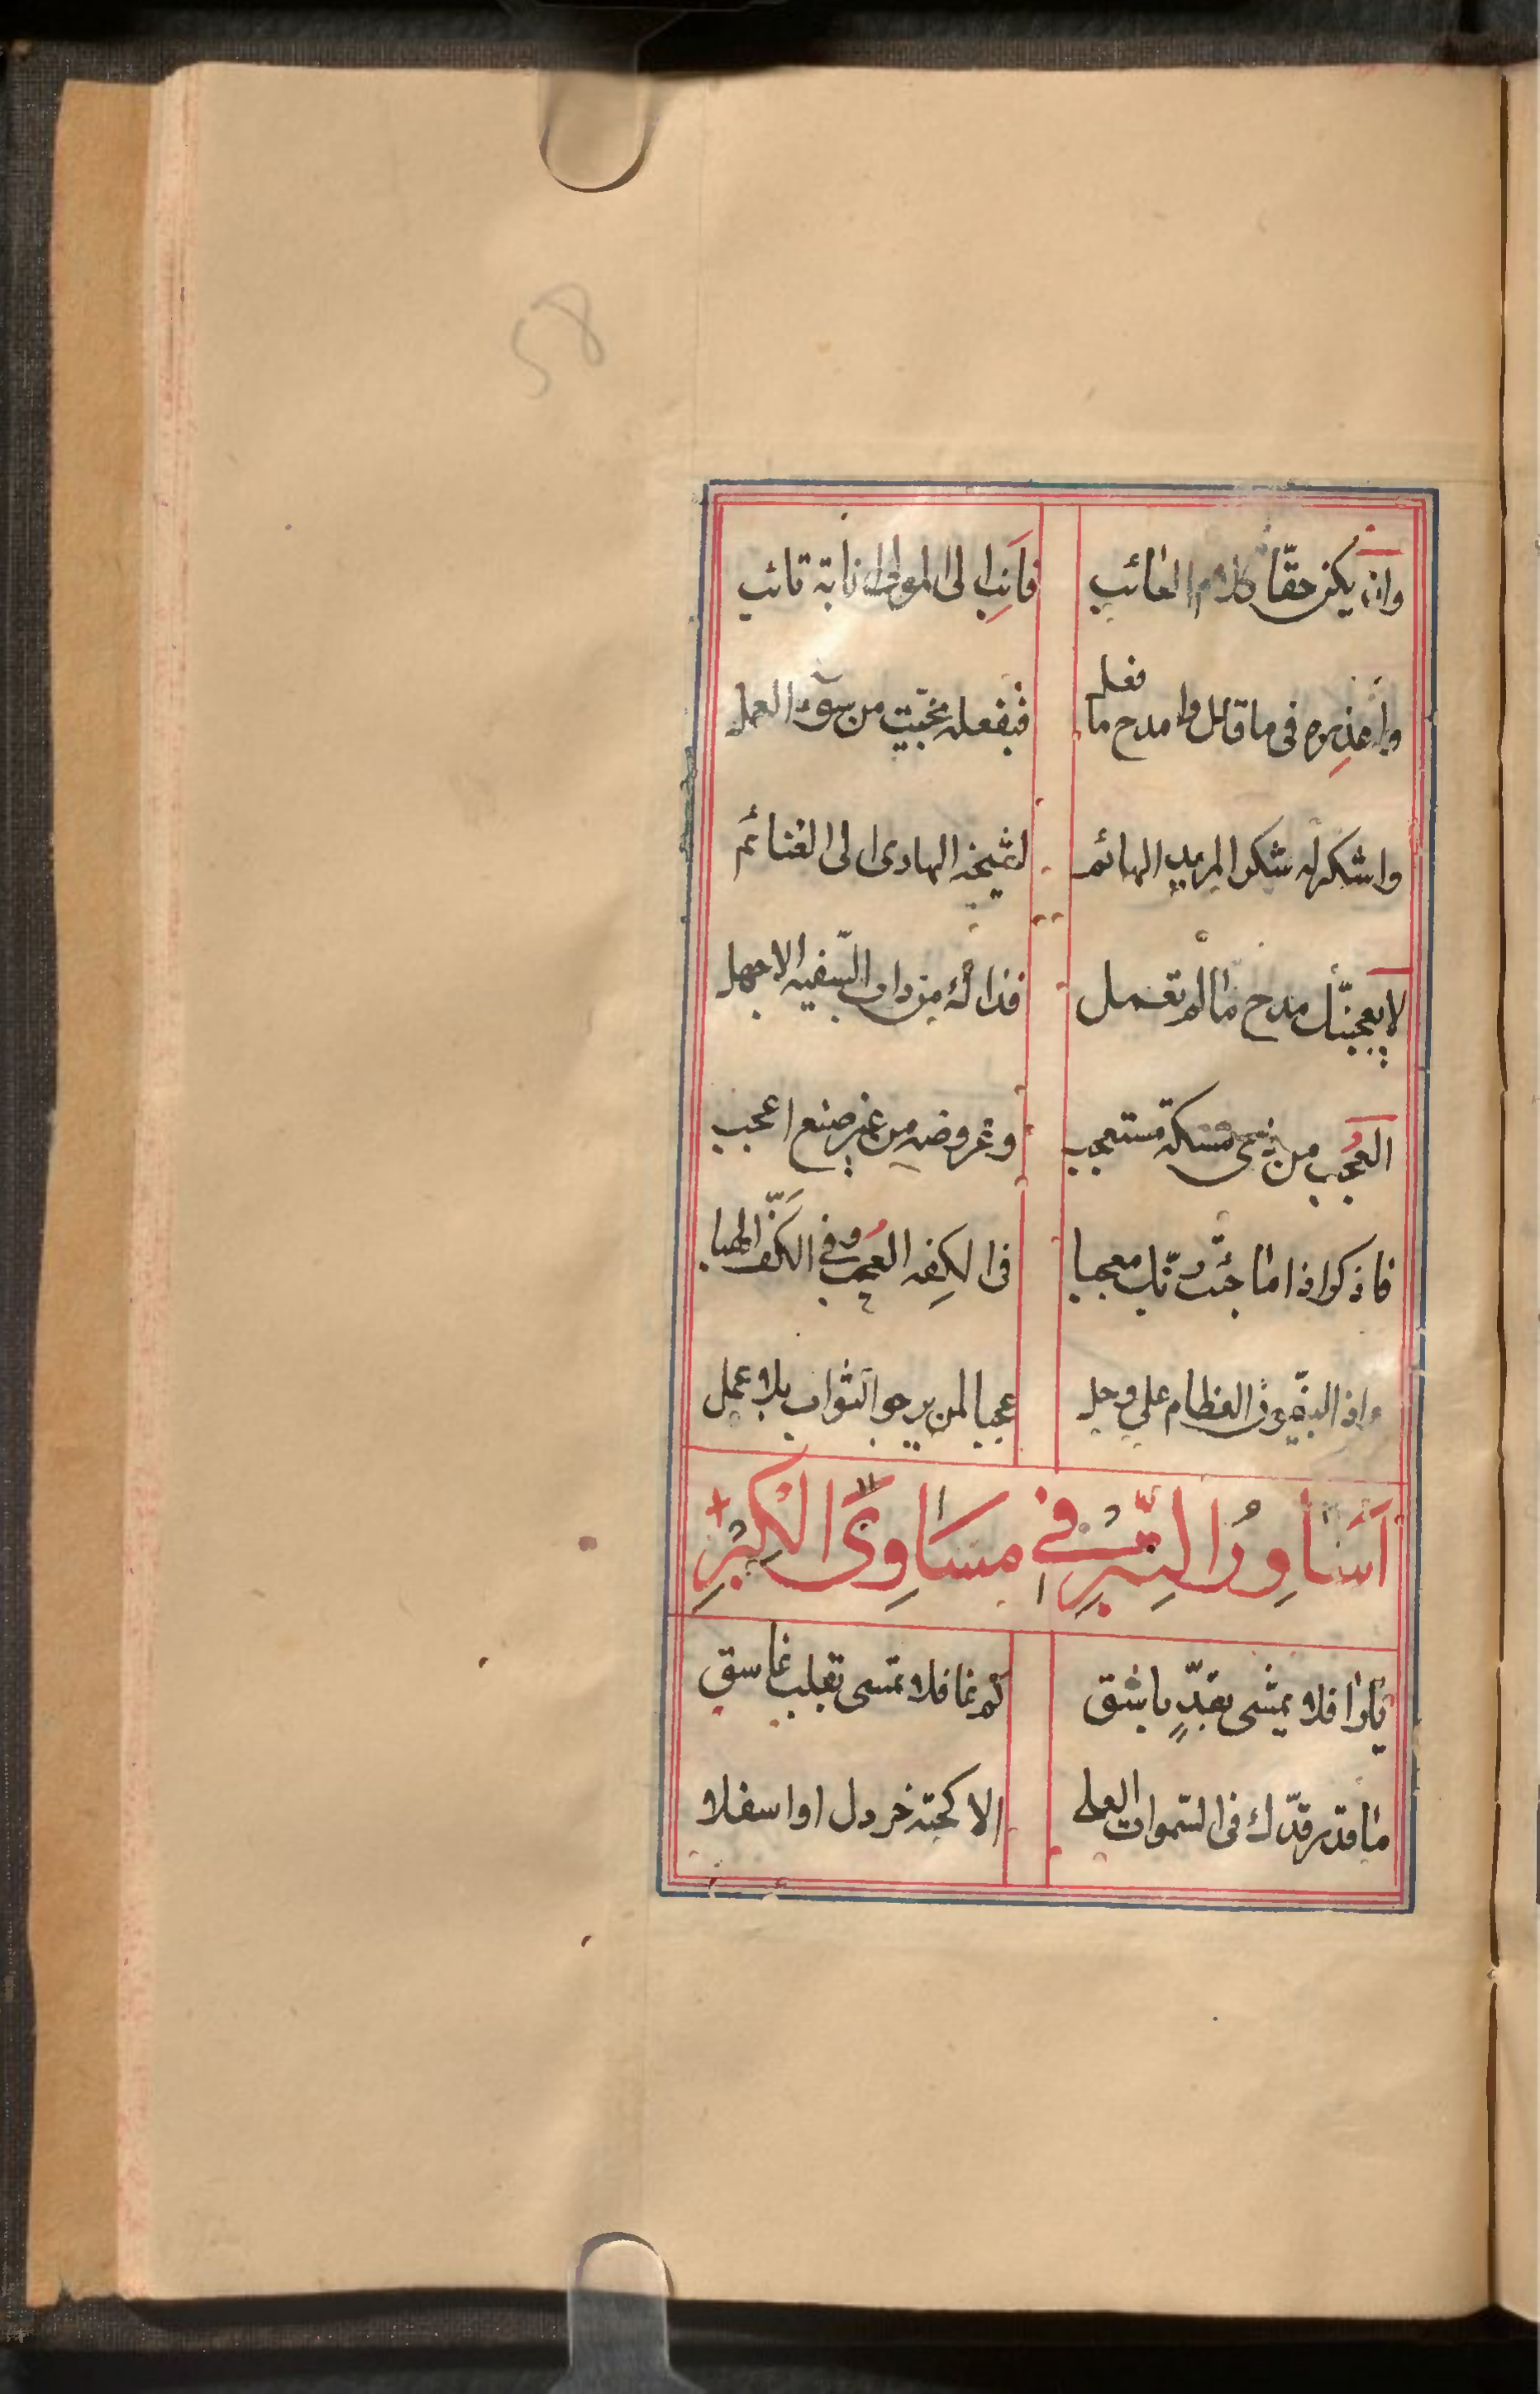 58
وان يكن حقّا كلام العائب فَانِب الى المولى انابة تائب
واعذِره فى ما قال وامدح ما فعل فبفعله نجّيت من سوء العمل
واشكر له شكر المريد الهائم لشيخه الهادى الى الغنائم
لا يعجبنّك مدح ما لم تعمل فذاك من داب السّفيه الاجهل
العُجب من ذى مسكة مستعجب وعروضه من غير صنع اعجب
فاذكر اذا ما جئت ربّك معجبا فى الكِفه العجب وفى الكَفّ الهبا
واذ النبيّون العظام على وجل عجبا لمن يرجو الثواب بلا عمل
اَسَاوِرُ التِّبْرِ فى مسَاوِى الْكِبْرِ
يا رافلا يمشى بقدٍّ باشق كم غافلا تمسى بقلب غاسق
ما قدر قدّك فى السّموات العلى الا كحبّة خردل او اسفلا